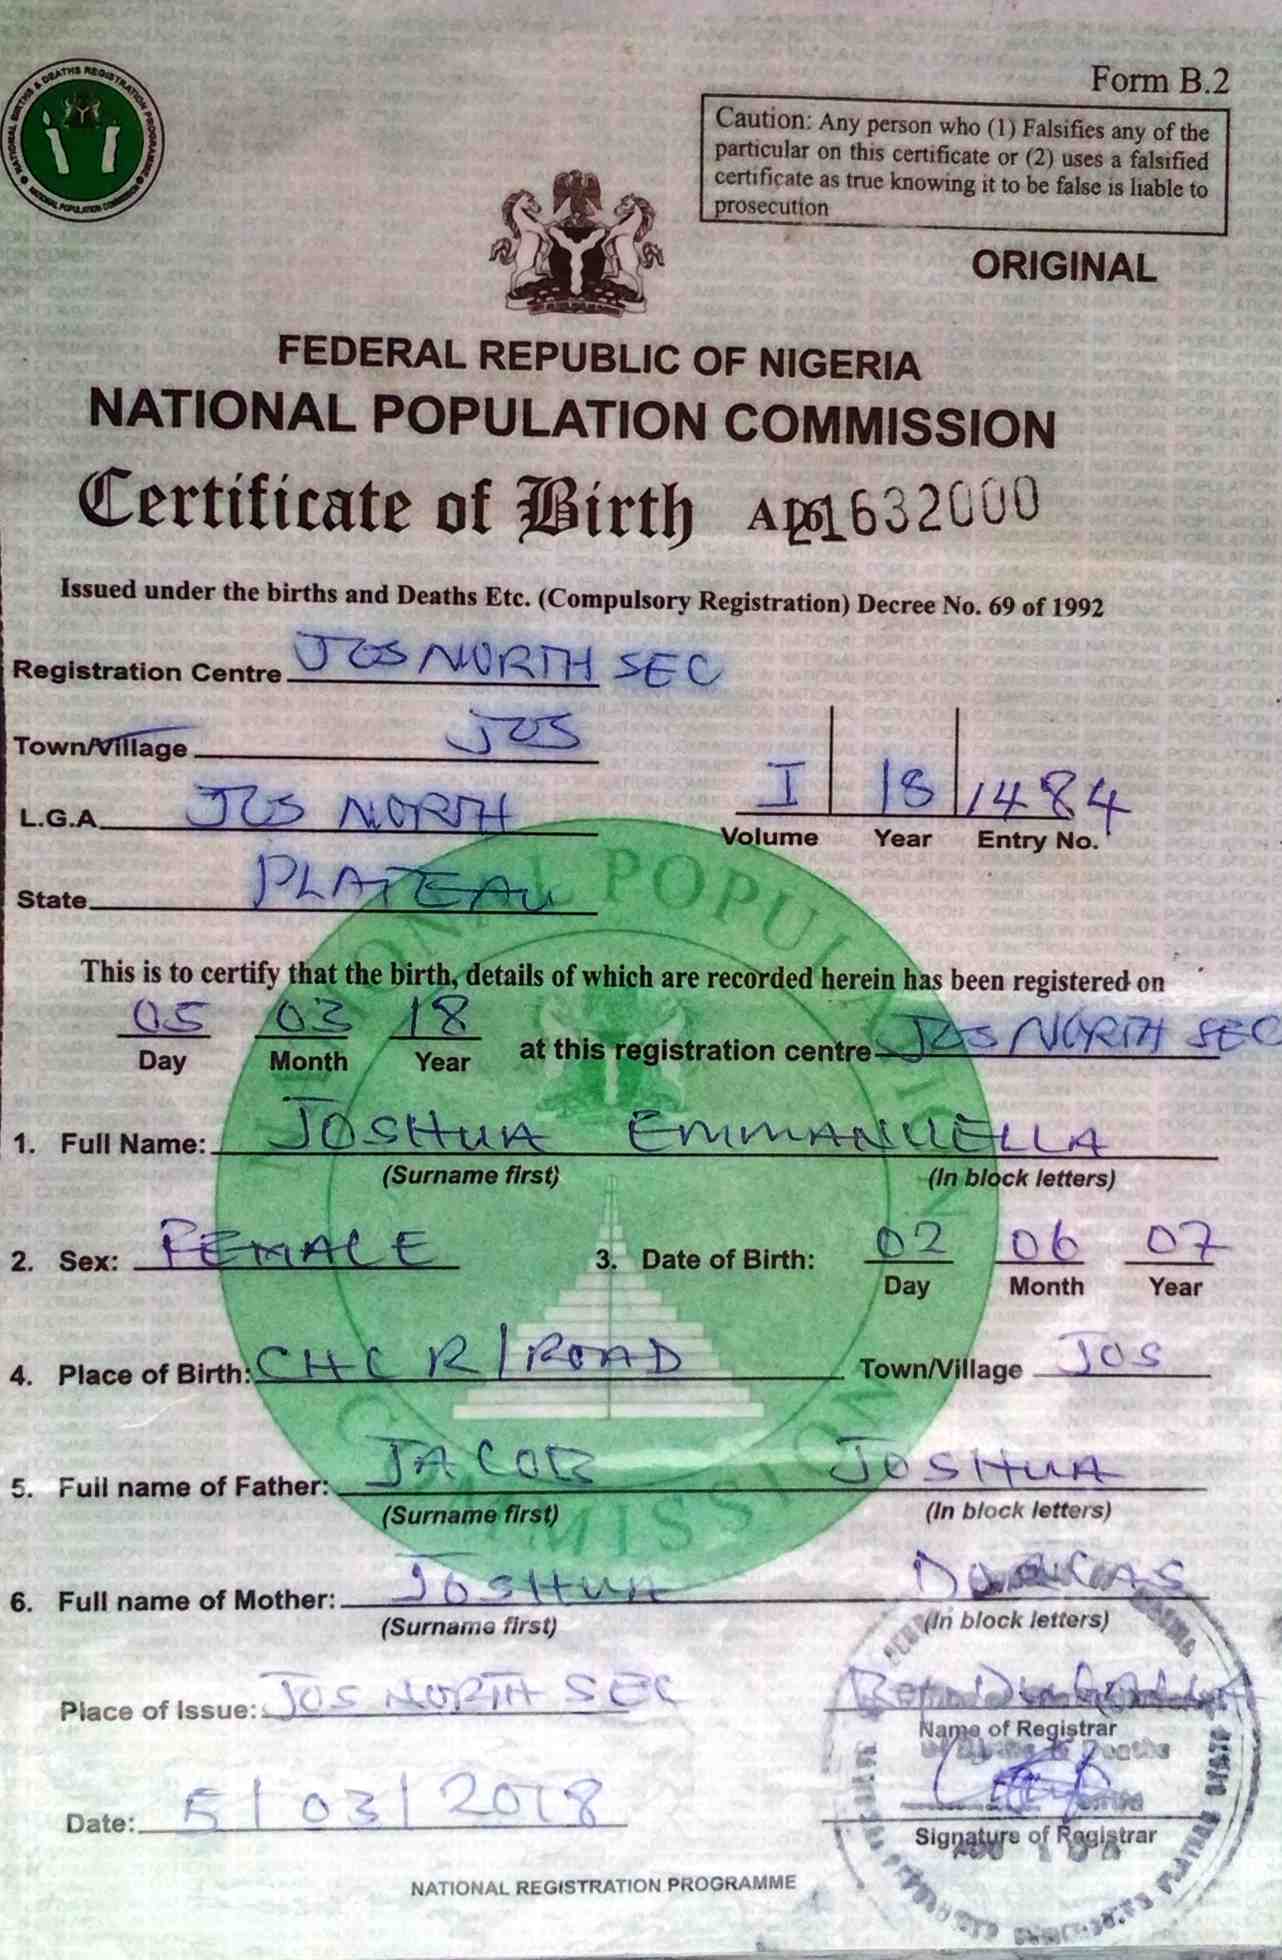 NATIONAL BIRTHS & DEATHS REGISTRATION PROGRAMME
NATIONAL POPULATION COMMISSION
Form B.2
Caution: Any person who (1) Falsifies any of the
particular on this certificate or (2) uses a falsified
certificate as true knowing it to be false is liable to
prosecution
ORIGINAL
FEDERAL REPUBLIC OF NIGERIA
NATIONAL POPULATION COMMISSION
Certificate of Birth 1632000
Issued under the births and Deaths Etc. (Compulsory Registration) Decree No. 69 of 1992
Registration Centre JOS NORTH SEC
Town/Village JOS
L.G.A JOS NORTH
I 18 1484
Volume Year Entry No.
State PLATEAU
This is to certify that the birth, details of which are recorded herein has been registered on
05 03 18 at this registration centre JOS NORTH SEC
Day Month Year
1. Full Name: JOSHUA EMMANUELLA
(Surname first) (In block letters)
2. Sex: FEMALE 3. Date of Birth: 02 06 07
Day Month Year
4. Place of Birth: CHC R/ROAD Town/Village JOS
5. Full name of Father: JACOB JOSHUA
(Surname first) (In block letters)
6. Full name of Mother: JOSHUA DORCAS
(Surname first) (In block letters)
Place of Issue: JOS NORTH SEC
Name of Registrar
Date: 5/03/2018
Signature of Registrar
NATIONAL REGISTRATION PROGRAMME
NATIONAL POPULATION COMMISSION